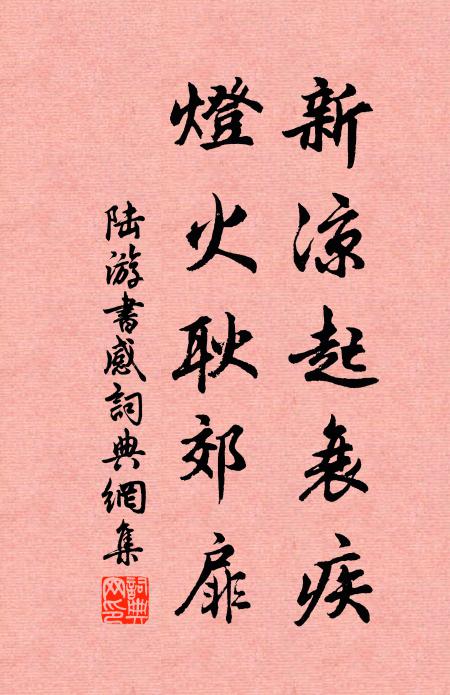 新涼起衰疾
燈火耿郊扉
陸游書感詞典網集
詞典
網印